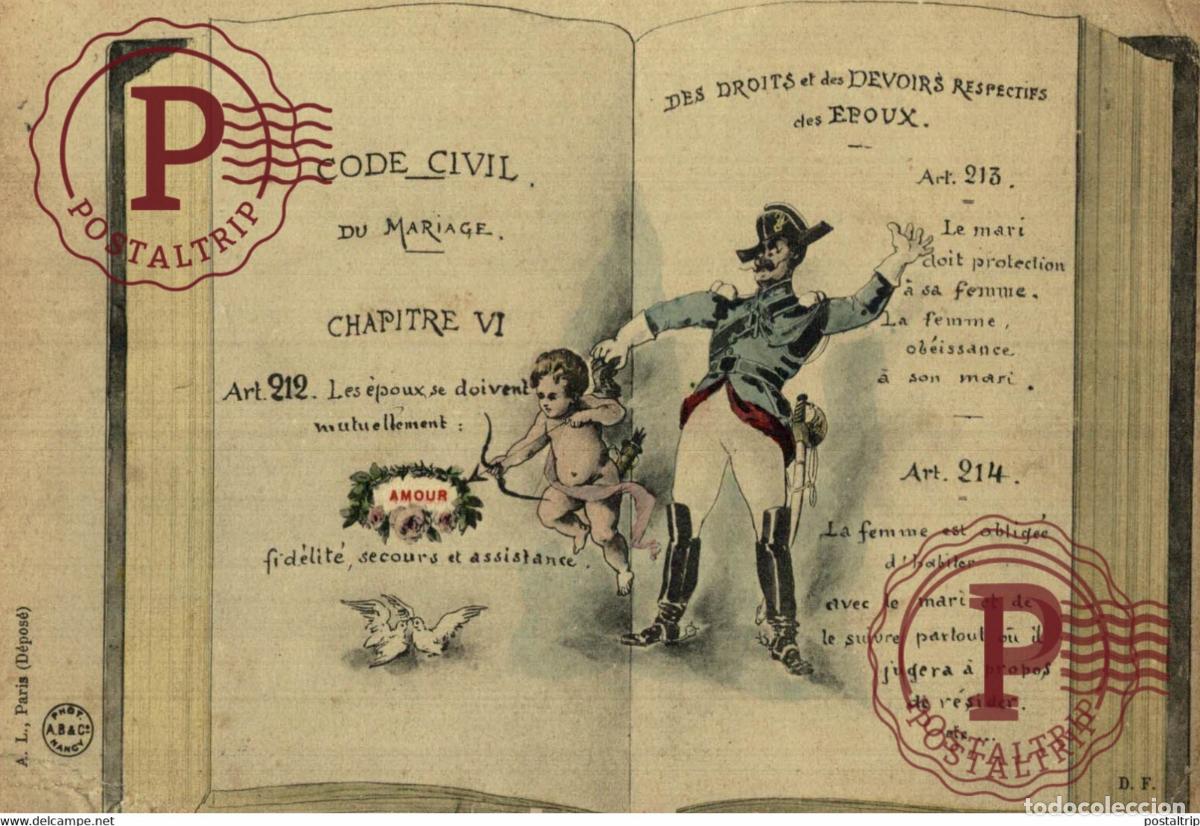 CODE CIVIL.
DU MARIAGE.
CHAPITRE VI
Art. 212. Les époux se doivent
mutuellement :
AMOUR
fidélité, secours et assistance.
DES DROITS et des DEVOIRS RESPECTIFS
des EPOUX.
Art. 213.
Le mari
doit protection
à sa femme.
La femme,
obéissance
à son mari.
Art. 214.
La femme est obligée
d'habiter
avec le mari et de
le suivre partout où il
jugera à propos
de résider.
etc...
A. L., Paris (Déposé)
PHOT.
A.B & Cº
NANCY
D. F.
P
POSTALTRIP
P
POSTALTRIP
POSTALTRIP
todocoleccion
www.todocoleccion.net
postaltrip